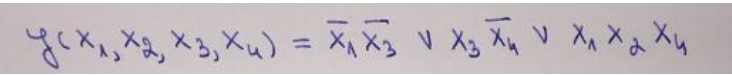 y(x₁, x₂, x₃, x₄) = x̅₁ x̅₃ ∨ x₃ x̅₄ ∨ x₁ x₂ x₄